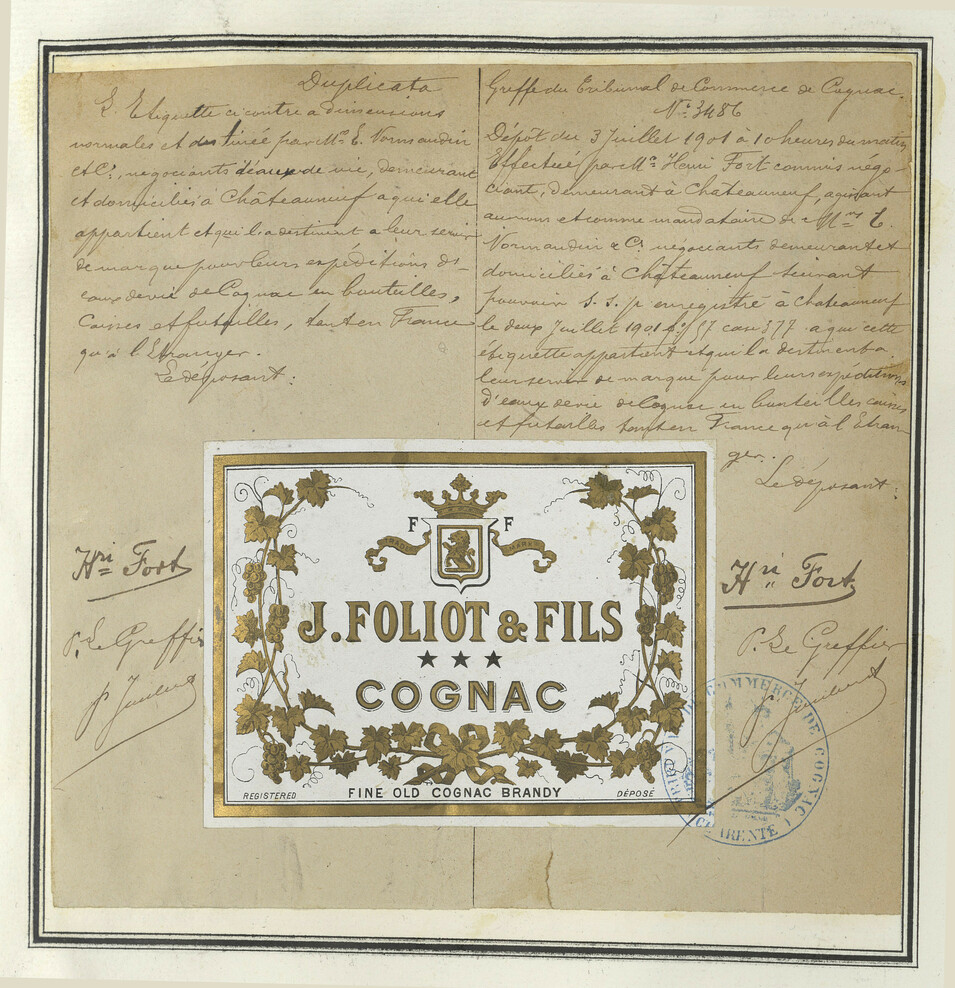 Duplicata
L'Etiquette ci contre a dimensions
normales et destinée par Mrs E. Normandin
et Cie, négociants d'eaux de vie, demeurant
et domiciliés à Châteauneuf à qui elle
appartient et qui la destinent a leur servir
de marque pour leurs expéditions d'-
eaux de vie de Cognac en bouteilles,
Caisses et futailles, tant en France
qu'à l'Etranger.
Le déposant:
Hri Fort
p. Le Greffier
Greffe du Tribunal de Commerce de Cognac
No 3486
Dépôt du 3 Juillet 1901 à 10 heures du matin
Effectué par Mr Henri Fort commis négo-
ciant, demeurant à Châteauneuf, agissant
au nom et comme mandataire de Mrs E.
Normandin & Cie négociants demeurant et
domiciliés à Châteauneuf suivant
pouvoir s. s. p. enregistré à Chateauneuf
le deux Juillet 1901 fo 57 case 377 a qui cette
étiquette appartient et qui la destinent a
leur servir de marque pour leurs expéditions
d'eaux de vie de Cognac en bouteilles caisses
et futailles tant en France qu'à l'Etran-
ger.
Le déposant:
Hri Fort
P. Le Greffier
F F
TRADE MARK
J. FOLIOT & FILS
COGNAC
REGISTERED FINE OLD COGNAC BRANDY DÉPOSÉ
COMMERCE DE COGNAC
CHARENTE